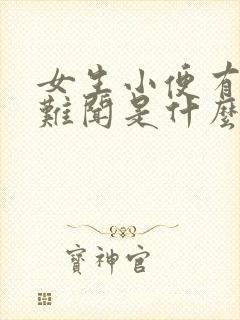 女生小便有
難聞是什麼
寶神官